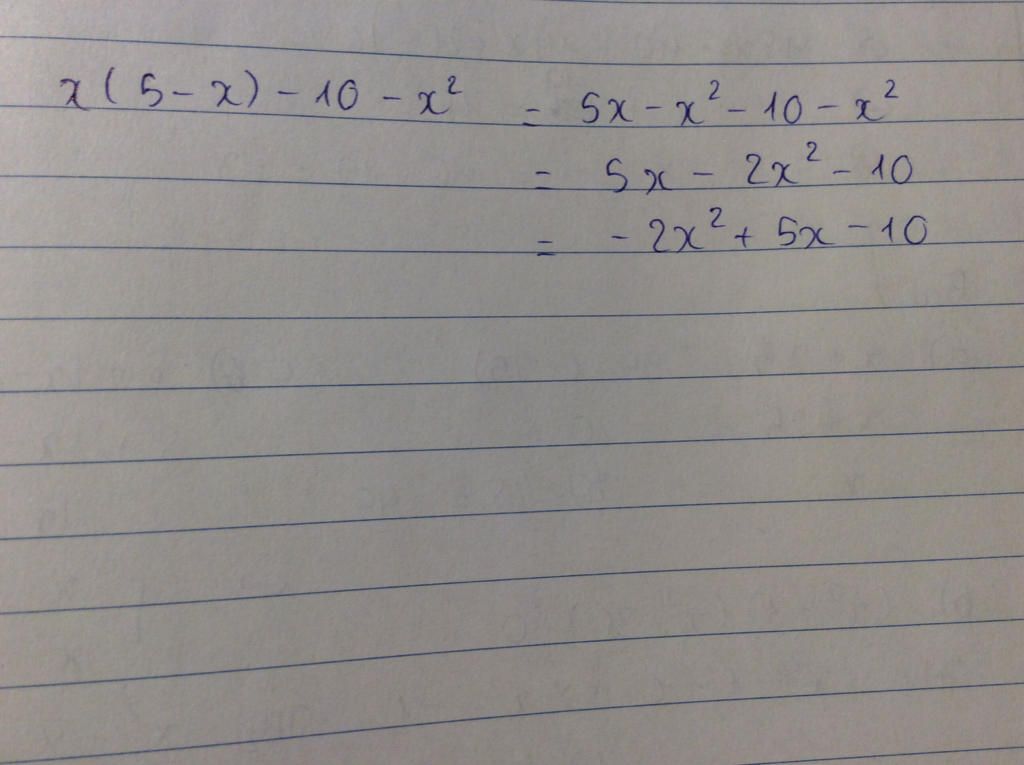 x(5-x)-10-x² = 5x-x²-10-x²
= 5x-2x²-10
= -2x²+5x-10